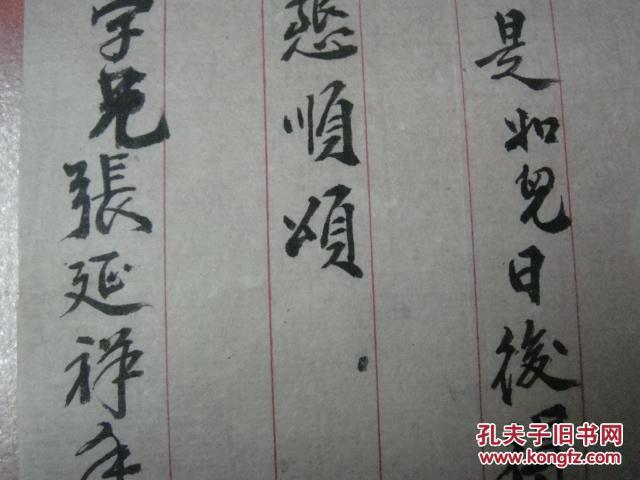 是如兒日後得
懇順頌
。
字兄張延祥手
孔夫子旧书网
www.kongfz.com